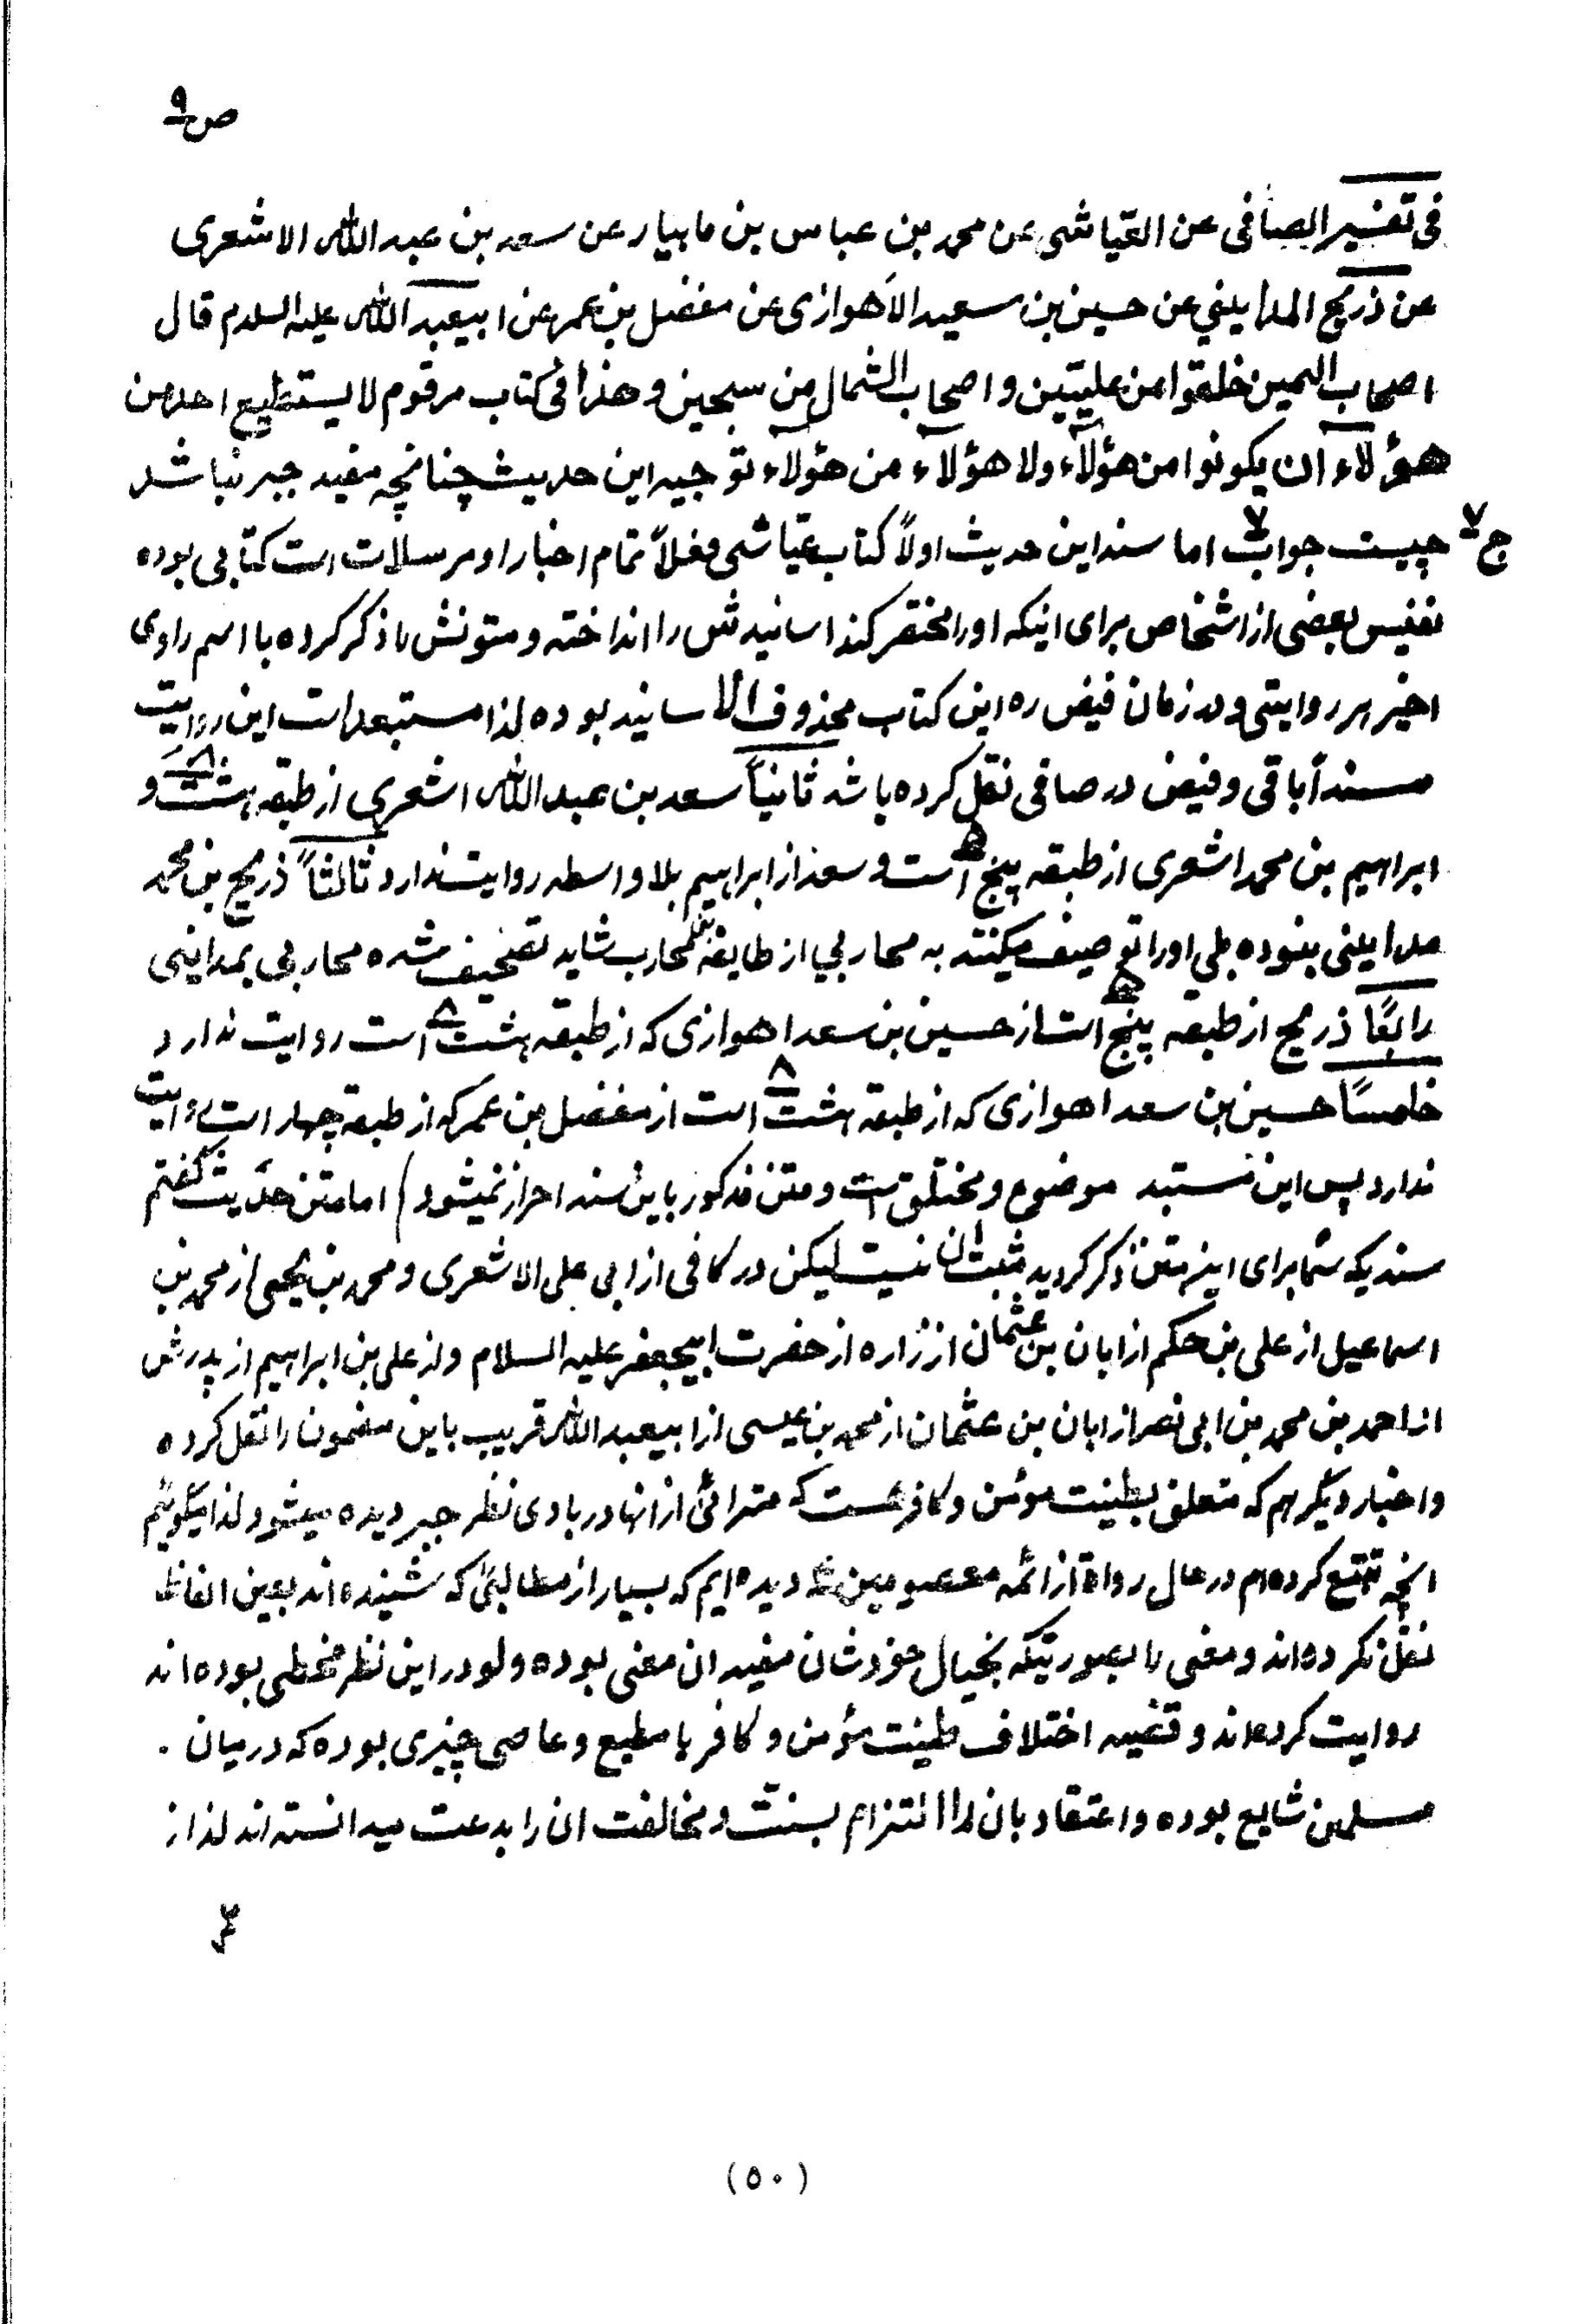 ص ۹
فی تفسیر الصافی عن العیّاشی عن محمد بن عباس بن ماهیار عن سعد بن عبدالله الاشعری
عن ذریح المداینی عن حسین بن سعید الاهوازی عن مفضل بن عمر عن ابیعبدالله علیه السلام قال
اصحاب الیمین خلقوا من علیّین و اصحاب الشمال من سجین و هذا فی کتاب مرقوم لا یستطیع احد من
هؤلاء ان یکونوا من هؤلاء ولا هؤلاء من هؤلاء توجیه این حدیث چنانچه مفید جبر نباشد
ج ۷ چیست جواب ۷ اما سند این حدیث اولاً کتاب عیّاشی فعلاً تمام اخبار او مرسلات است کتابی بوده
نفیس بعضی از اشخاص برای اینکه او را مختصر کند اسانیدش را انداخته و متونش را ذکر کرده با اسم راوی
اخیر هر روایتی و در زمان فیض ره این کتاب محذوف الاسانید بوده لذا مستبعد است این روایت
مسنداً باقی و فیض در صافی نقل کرده باشد ثانیاً سعد بن عبدالله اشعری از طبقه هشت ۸ و
ابراهیم بن محمد اشعری از طبقه پنج ۵ است و سعد از ابراهیم بلا واسطه روایت ندارد ثالثاً ذریح بن محمد
مداینی نبوده بلی او را توصیف میکنند به محاربی از طایفه محارب شاید تصحیف شده محاربی بمداینی
رابعًا ذریح از طبقه پنج ۵ است از حسین بن سعد اهوازی که از طبقه هشت ۸ است روایت ندارد
خامسًا حسین بن سعد اهوازی که از طبقه هشت ۸ است از مفضل بن عمر که از طبقه چهار است روایت
ندارد پس این مستند موضوع و مختلق است و متن مذکور باین سند احراز نمیشود) اما متن حدیث گفتم
سندیکه شما برای این متن ذکر کردید مثبت ان نیست لیکن در کافی از ابی علی الاشعری و محمد بن یحیی از محمد بن
اسماعیل از علی بن حکم از ابان بن عثمان از زراره از حضرت ابیجعفر علیه السلام و از علی بن ابراهیم از پدرش
از احمد بن محمد بن ابی نصر از ابان بن عثمان از محمد بن عیسی از ابیعبدالله قریب باین مضمون را نقل کرده
و اخبار دیگر هم که متعلق بطینت مؤمن و کافر هست که مترائی از انها در بادی نظر جبر دیده میشود لذا میگوئیم
انچه تتبع کرده ام در حال رواة از ائمه معصومین ع دیده ایم که بسیار از مطالبی که شنیده اند بعین الفاظ
نقل نکرده اند و معنی را بصورتیکه بخیال خودشان مفید ان معنی بوده و لو در این نظر مخطی بوده اند
روایت کرده اند و قضیه اختلاف طینت مؤمن و کافر یا مطیع و عاصی چیزی بوده که در میان .
مسلمین شایع بوده و اعتقاد بان را التزام بسنت و مخالفت ان را بدعت میدانسته اند لذا از
(۵۰)